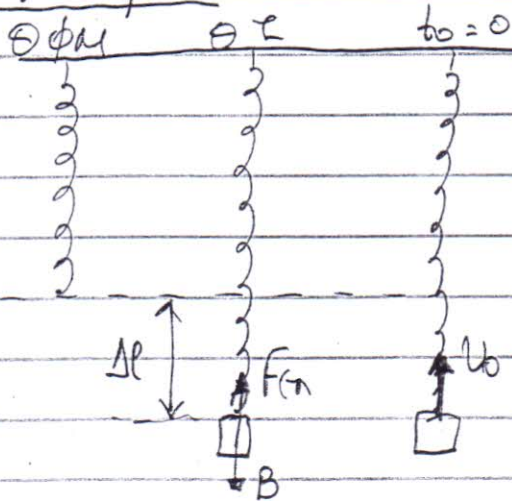 ΘΦΜ ΘΙ t₀=0
Δℓ Fελ U₀
B